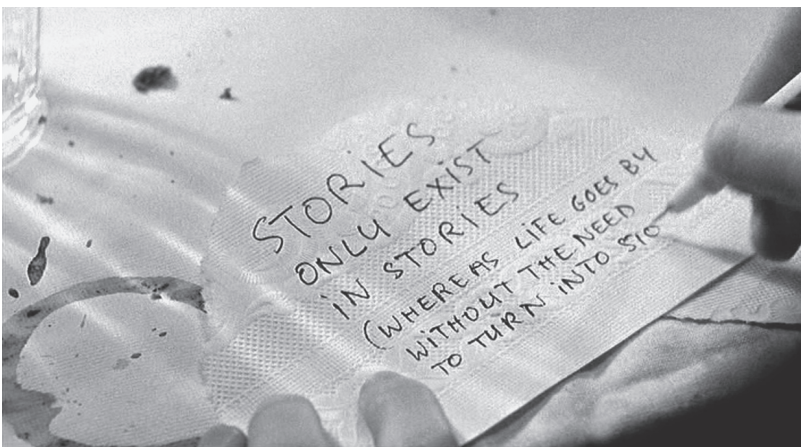 STORIES
ONLY EXIST
IN STORIES
(WHEREAS LIFE GOES BY
WITHOUT THE NEED
TO TURN INTO STO